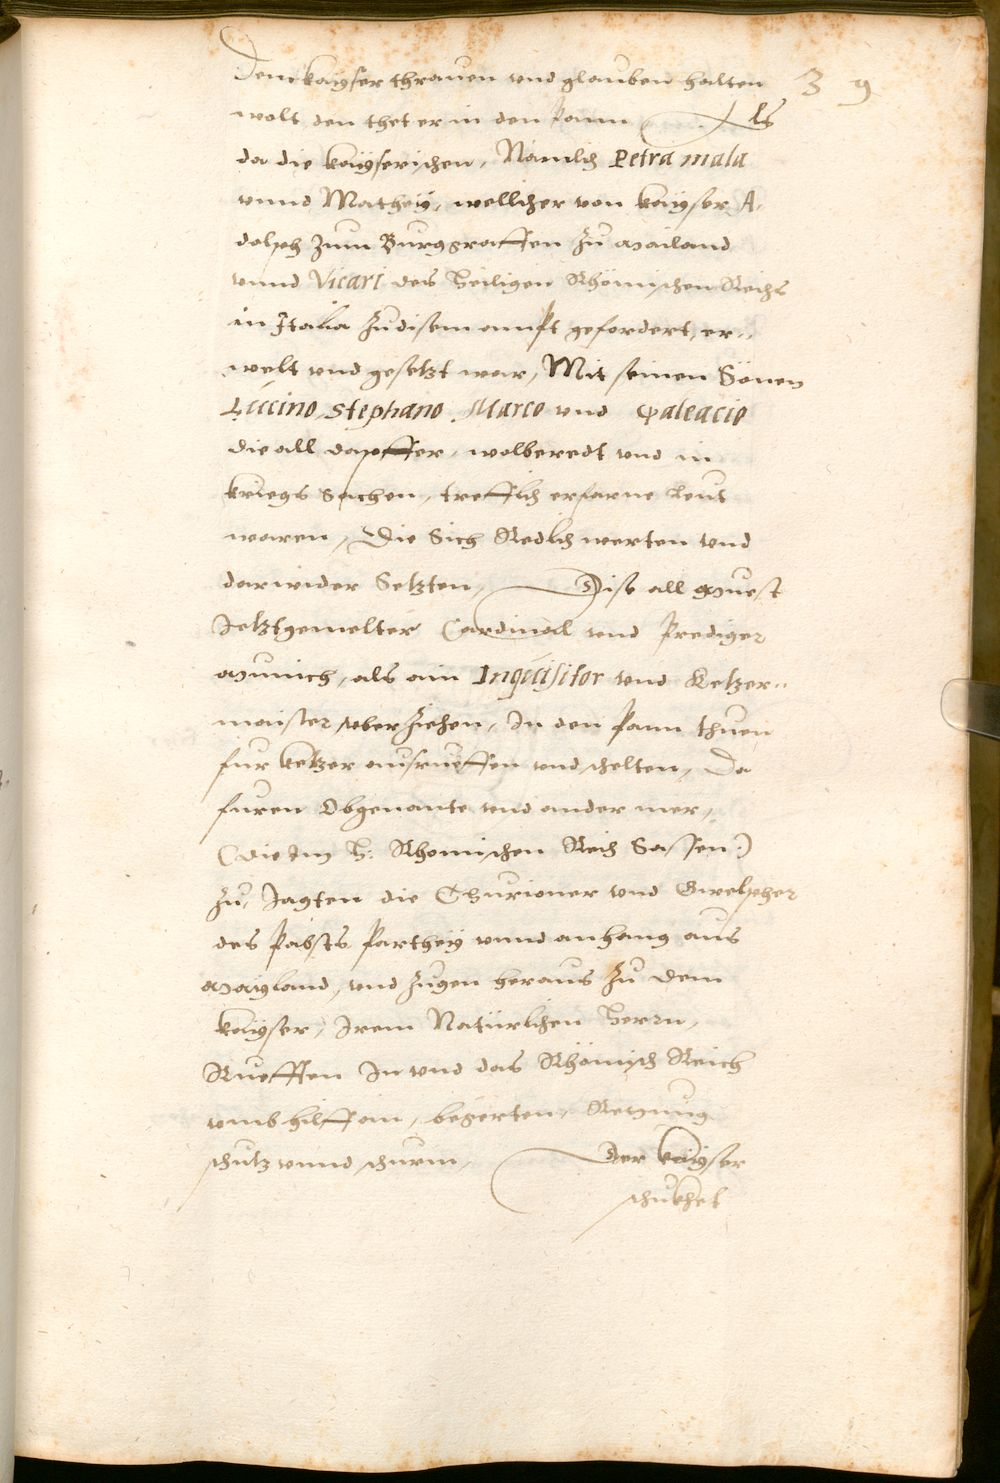 Dem kayser thrauen vnd glauben halten
39
wolt den thet er in den pann Als
da die kayserischen, Nämlich Petra mala
vnnd Mathej, wellicher von kayser A,
dolph zum Burggraffen zu Mailand
vnnd Vicari des Heiligen Rhömischen Reichs
in Italia zu disem ampt gefordert, er=
welt vnd gesetzt war, Mit seinen Sönen
Luccino, Stephano, Marco vnd Galeacio
die all dapffer, wolberedt vnd in
kriegs Sachen, trefflich erfarne Leut
waren, Die Sich Redlich werten vnd
darwider Setzten, Dise all muest
Ietztgemelter Cardinal vnd prediger
Munich, als ain Inquisitor vnd Ketzer=
maister vberziehen, In den pann thuen
fur ketzer ausrueffen vnd schelten, Da
furen Obgenante vnd ander mer,
(die Im H: Rhomischen Reich Sassen)
zu, Iagten die Thurioner vnd Gwelpher
des pabsts parthey vnnd anhang aus
Mayland, vnd zugen heraus zu dem
kayser, Irem Natürlichen Herrn,
Rueffen In vnd das Rhömisch Reich
vmb hilff an, begerten, Rettung
schutz vnnd schirm, Der kayser
schikhet